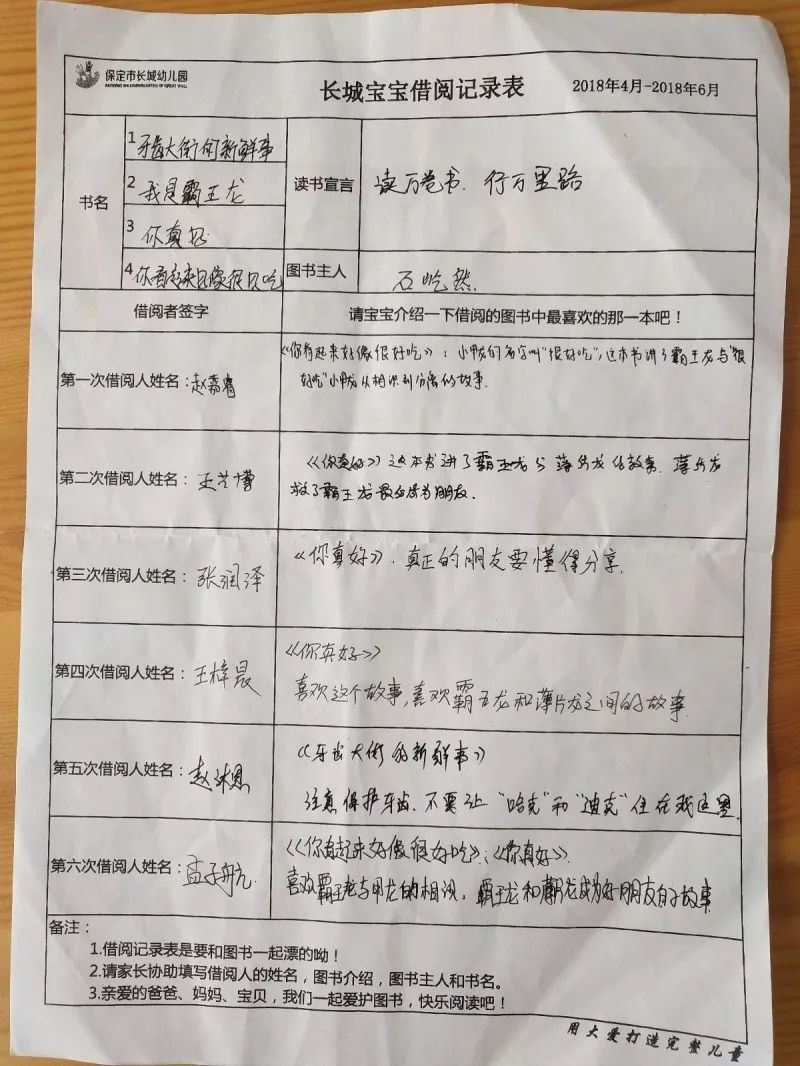 保定市长城幼儿园
长城宝宝借阅记录表 2018年4月-2018年6月
书名
1 牙齿大街的新鲜事
2 我是霸王龙
3 你真好
4 你看起来好像很好吃
读书宣言
读万卷书、行万里路
图书主人
石屹然
借阅者签字
请宝宝介绍一下借阅的图书中最喜欢的那一本吧！
第一次借阅人姓名：赵嘉睿
《你看起来好像很好吃》：小甲龙的名字叫“很好吃”，这本书讲了霸王龙与“很
好吃”小甲龙从相识到分离的故事.
第二次借阅人姓名：王艺博
《你真好》这本书讲了霸王龙与薄片龙的故事，薄片龙
救了霸王龙最后成为朋友.
第三次借阅人姓名：张润泽
《你真好》. 真正的朋友要懂得分享.
第四次借阅人姓名：王梓晨
《你真好》
喜欢这个故事，喜欢霸王龙和薄片龙之间的故事
第五次借阅人姓名：赵沐恩
《牙齿大街的新鲜事》
注意保护牙齿、不要让“哈克”和“迪克”住在我这里.
第六次借阅人姓名：孟子航
《你看起来好像很好吃》；《你真好》.
喜欢霸王龙与甲龙的相识，霸王龙和薄片龙成为好朋友的故事
备注：
1.借阅记录表是要和图书一起漂的呦！
2.请家长协助填写借阅人的姓名，图书介绍，图书主人和书名。
3.亲爱的爸爸、妈妈、宝贝，我们一起爱护图书，快乐阅读吧！
用大爱打造完整儿童